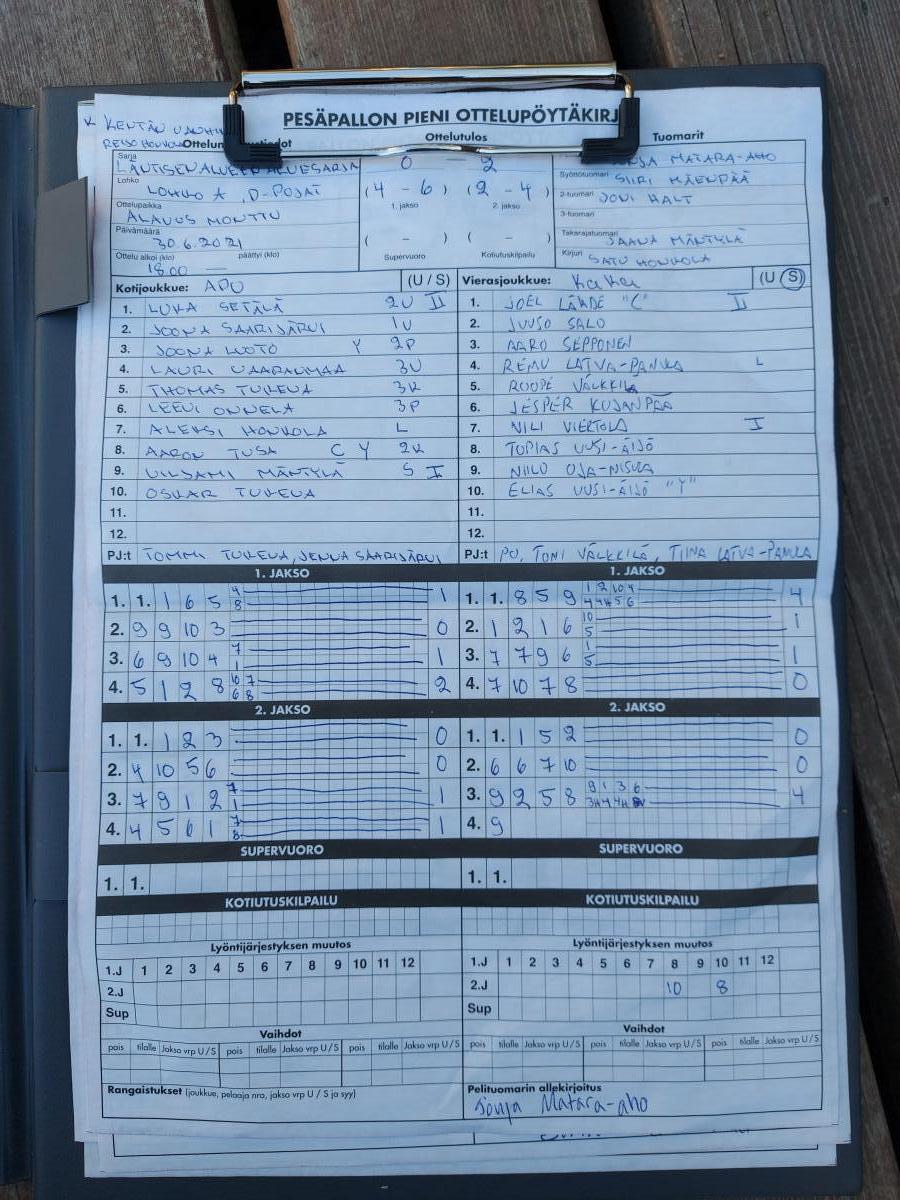 PESÄPALLON PIENI OTTELUPÖYTÄKIRJ
KENTÄN
Ottelun
Ottelutulos
Tuomarit
Sarja
LÄNTISEN ALUEEN ALUESARJA
0 - 2
MATARA-AHO
Lohko
LOHKO A, D-POJAT
(4 - 6) (2 - 4)
Syöttötuomari SIIRI MÄENPÄÄ
1. jakso 2. jakso
2-tuomari JONI HALT
Ottelupaikka
ALAVUS MONTTU
3-tuomari
Päivämäärä
30.6.2021
( - ) ( - )
Takarajatuomari JAANA MÄNTYLÄ
Ottelu alkoi (klo) päättyi (klo)
18.00 —
Supervuoro Kotiutuskilpailu
Kirjuri SATU HONKOLA
Kotijoukkue: APU (U / S)
1. LUKA SETÄLÄ 2U II
2. JOONA SAARIJÄRVI 1U
3. JOONA LUOTO Y 2P
4. LAURI VAARAUMAA 3U
5. THOMAS TUKEVA 3K
6. LEEVI ONNELA 3P
7. ALEKSI HONKOLA L
8. AARON TUSA C Y 2K
9. VILJAMI MÄNTYLÄ S I
10. OSKAR TUKEVA
11.
12.
PJ:t TOMMI TUKEVA, JENNA SAARIJÄRVI
Vierasjoukkue: KaKa (U / S)
1. JOEL LÄHDE "C" II
2. JUUSO SALO
3. AARO SEPPONEN
4. REMU LATVA-PANULA L
5. ROOPE VÄLKKILÄ
6. JESPER KUJANPÄÄ
7. NILI VIERTOLA I
8. TOPIAS UUSI-ÄIJÖ
9. NIILO OJA-NISULA
10. ELIAS UUSI-ÄIJÖ "Y"
11.
12.
PJ:t PO, TONI VÄLKKILÄ, TIINA LATVA-PANULA
1. JAKSO
1. 1. 1 6 5 4 8 1
2. 9 9 10 3 0
3. 6 9 10 4 7 1 1
4. 5 1 2 8 10 7 6 8 2
1. JAKSO
1. 1. 8 5 9 1 2 10 4 4 4 4 5 6 4
2. 1 2 1 6 10 5 1
3. 7 7 9 6 1 5 1
4. 7 10 7 8 0
2. JAKSO
1. 1. 1 2 3 0
2. 4 10 5 6 0
3. 7 9 1 2 7 1 1
4. 4 5 6 1 7 8 1
2. JAKSO
1. 1. 1 5 2 0
2. 6 6 7 10 0
3. 9 2 5 8 9 1 3 6 4
4. 9
SUPERVUORO
1. 1.
SUPERVUORO
1. 1.
KOTIUTUSKILPAILU
KOTIUTUSKILPAILU
Lyöntijärjestyksen muutos
1.J 1 2 3 4 5 6 7 8 9 10 11 12
2.J
Sup
Lyöntijärjestyksen muutos
1.J 1 2 3 4 5 6 7 8 9 10 11 12
2.J 10 8
Sup
Vaihdot
pois tilalle Jakso vrp U/S pois tilalle Jakso vrp U/S pois tilalle Jakso vrp U/S
Vaihdot
pois tilalle Jakso vrp U/S pois tilalle Jakso vrp U/S pois tilalle Jakso vrp U/S
Rangaistukset (joukkue, pelaaja nro, jakso vrp U / S ja syy)
Pelituomarin allekirjoitus
Sonja Matara-aho